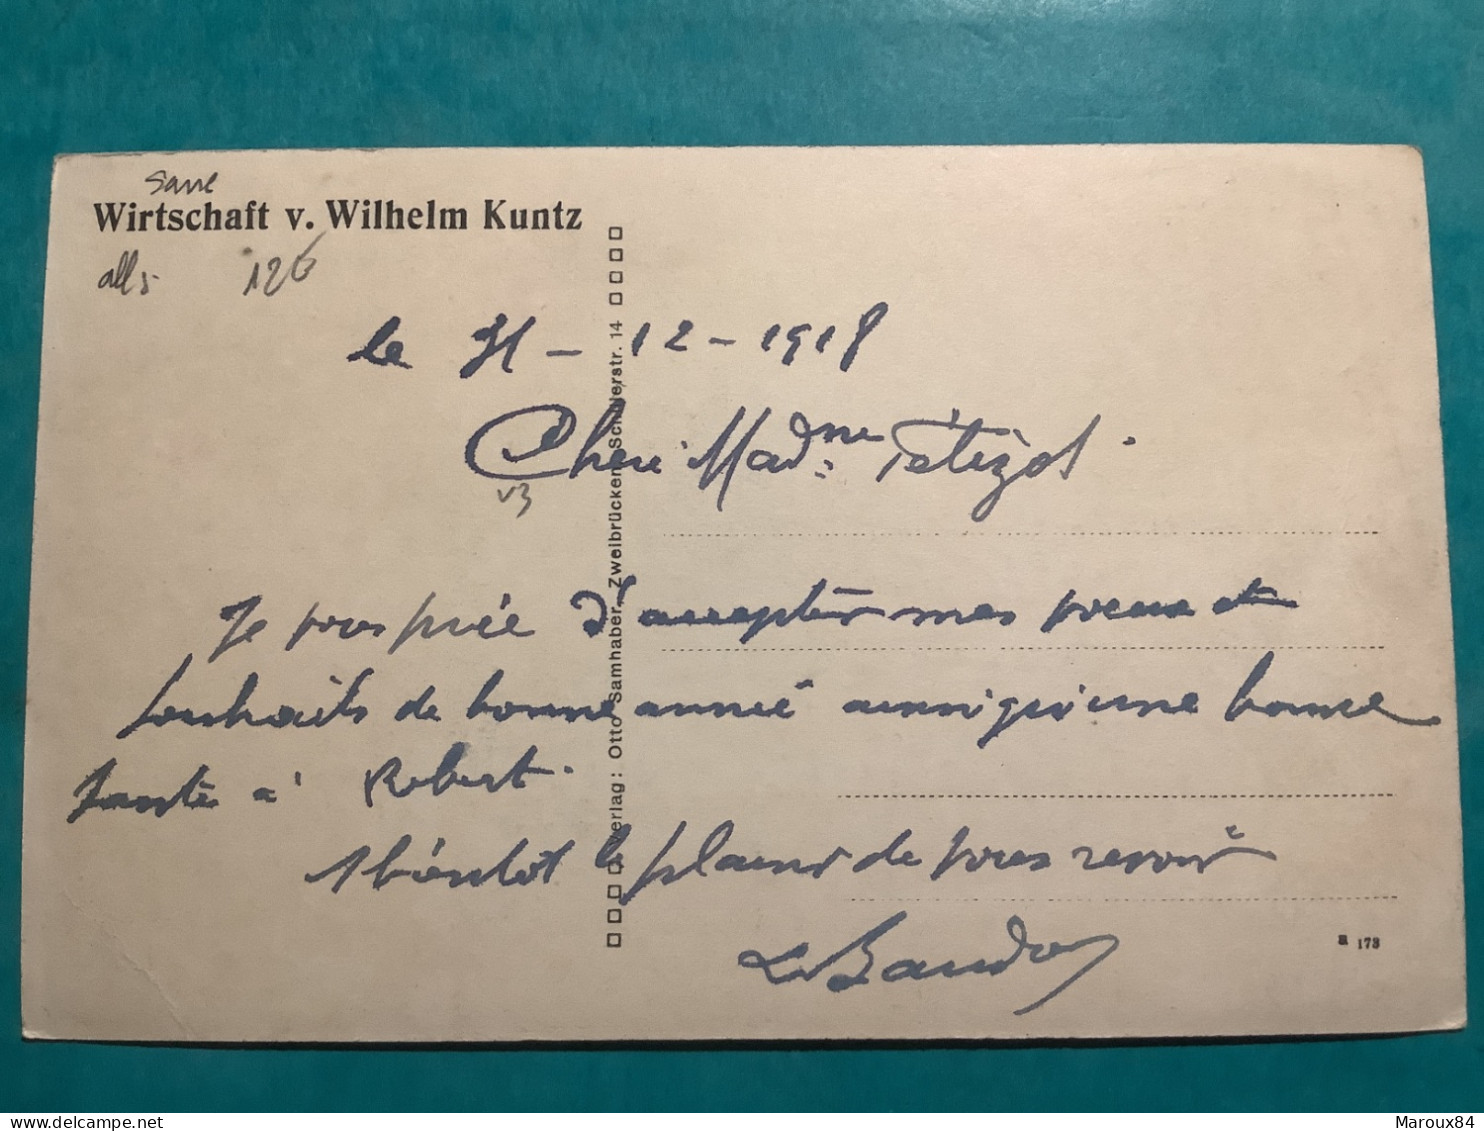 Sarre
Wirtschaft v. Wilhelm Kuntz
all 5 12€
le 31 - 12 - 1918
Chere Madme
v3
Je vous priée d'accepter mes voeux et
souhaits de bonne année aussi qu'une bonne
santé à Robert.
Abientot le plaisir de vous revoir
L. Baudoy
Verlag: Otto Samhaber, Zweibrücken, Schillerstr. 14
a 173
Maroux84